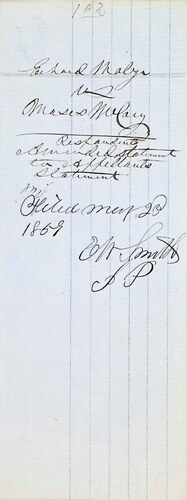 102
Erhard Malzn
vs
Moses McCay
Respondents
Amended Statement
to Appellants
Statement
Filed May 23
1859
E W Smith
J P